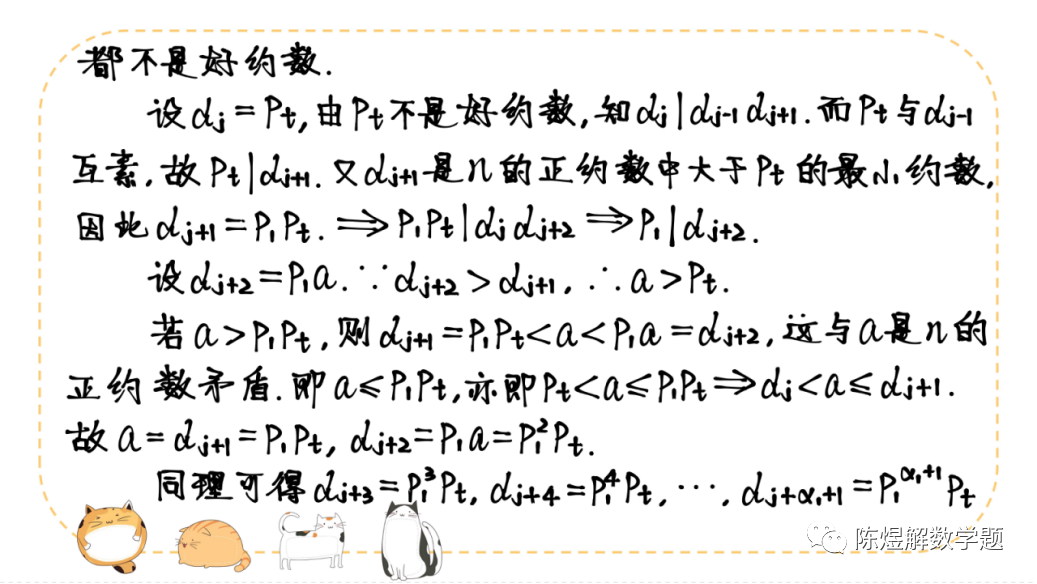 都不是好约数.
设dj=Pt,由Pt不是好约数,知dj|dj-1dj+1.而Pt与dj-1
互素,故Pt|dj+1.又dj+1是n的正约数中大于Pt的最小约数,
因此dj+1=P₁Pt.⟹P₁Pt|djdj+2⟹P₁|dj+2.
设dj+2=P₁a.∵dj+2>dj+1,∴a>Pt.
若a>P₁Pt,则dj+1=P₁Pt<a<P₁a=dj+2,这与a是n的
正约数矛盾.即a≤P₁Pt,亦即Pt<a≤P₁Pt⟹dj<a≤dj+1.
故a=dj+1=P₁Pt,dj+2=P₁a=P₁²Pt.
同理可得dj+3=P₁³Pt,dj+4=P₁⁴Pt,⋯,dj+α₁+1=P₁^(α₁+1)Pt
陈煜解数学题